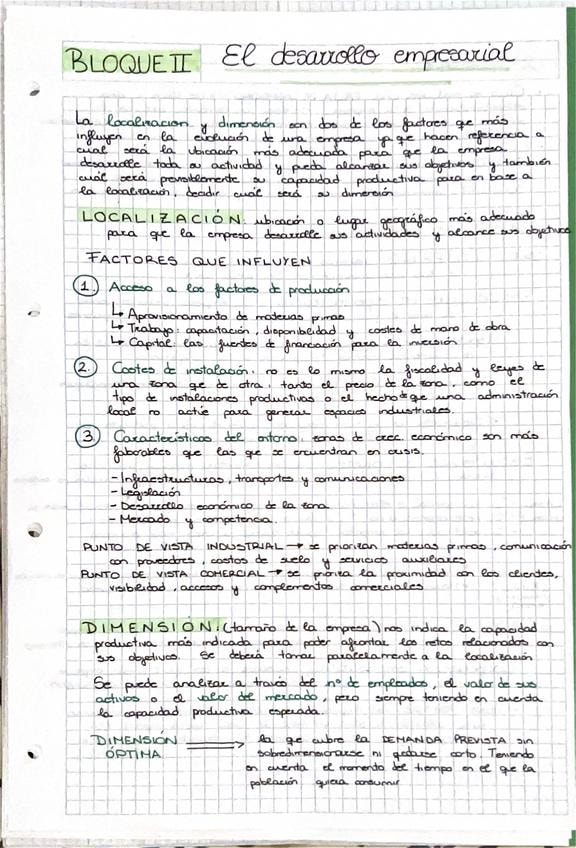 BLOQUE II El desarrollo empresarial
La localizacion y dimensión son dos de los factores que más
influyen en la evolución de una empresa ya que hacen referencia a
cual será la ubicación más adecuada para que la empresa
desarrolle toda su actividad y pueda alcanzar sus objetivos y también
cuál será previsiblemente su capacidad productiva para en base a
la localización, decidir cuál será su dimensión
LOCALIZACIÓN: ubicación o lugar geográfico más adecuado
para que la empresa desarrolle sus actividades y alcance sus objetivos
FACTORES QUE INFLUYEN
1. Acceso a los factores de producción
↳ Aprovisionamiento de materias primas
↳ Trabajo: capacitación, disponibilidad y costes de mano de obra
↳ Capital: las fuentes de financiación para la inversión
2. Costes de instalación: no es lo mismo la fiscalidad y leyes de
una zona que de otra, tanto el precio de la zona, como el
tipo de instalaciones productivas o el hecho de que una administración
local no actúe para generar espacios industriales.
3. Características del entorno: zonas de crec. económico son más
faborables que las que se encuentran en crisis.
- Infraestructuras, transportes y comunicaciones
- Legislación
- Desarrollo económico de la zona
- Mercado y competencia.
PUNTO DE VISTA INDUSTRIAL → se priorizan materias primas, comunicación
con proveedores, costos de suelo y servicios auxiliares
PUNTO DE VISTA COMERCIAL → se prioriza la proximidad con los clientes,
visibilidad, accesos y complementos comerciales
DIMENSIÓN: (tamaño de la empresa) nos indica la capacidad
productiva más indicada para poder afrontar los retos relacionados con
sus objetivos. Se deberá tomar paralelamente a la localización
Se puede analizar a través del nº de empleados, el valor de sus
activos o el valor del mercado, pero siempre teniendo en cuenta
la capacidad productiva esperada.
DIMENSIÓN ÓPTIMA ⟹ la que cubre la DEMANDA PREVISTA sin
sobredimensionarse ni quedarse corto. Teniendo
en cuenta el momento del tiempo en el que la
población quiera consumir